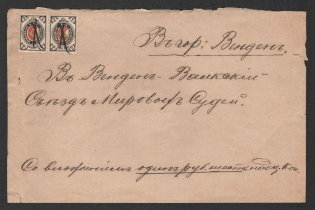 Въ гор: Венденъ.
Въ Венденъ-Валкскій
Съѣздъ Мировыхъ Судей.
Со вложеніемъ одинъ руб.